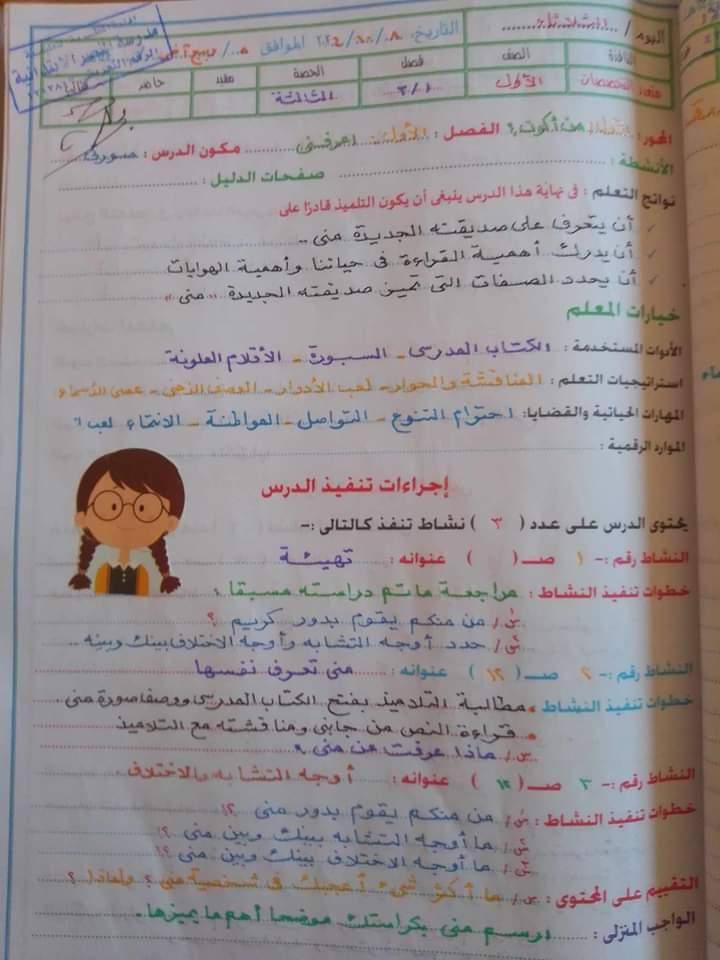 اليوم / الثلاثاء التاريخ: ٢٠٢٤/١٠/٨ الموافق ٥/ربيع آخر
المادة الصف فصل الحصة مقيد حاضر
متعدد التخصصات الأول ٢/١ الثالثة
المحور: من أكون؟ الفصل: الأول اعرفنى مكون الدرس:
الأنشطة: صفحات الدليل:
نواتج التعلم: فى نهاية هذا الدرس ينبغى أن يكون التلميذ قادرًا على
✓ أن يتعرف على صديقته الجديدة منى ..
✓ أن يدرك أهمية القراءة فى حياتنا وأهمية الهوايات
✓ أن يحدد الصفات التى تميز صديقته الجديدة "منى"
خيارات المعلم
الأدوات المستخدمة: الكتاب المدرسى - السبورة - الأقلام الملونة
استراتيجيات التعلم: المناقشة والحوار - لعب الأدوار - العصف الذهنى - عصى الأسماء
المهارات الحياتية والقضايا: احترام التنوع - التواصل - المواطنة - الانتماء
الموارد الرقمية:
إجراءات تنفيذ الدرس
يحتوى الدرس على عدد ( ٣ ) نشاط تنفذ كالتالى :-
النشاط رقم :- ١ صـ ( ) عنوانه : تهيئة
خطوات تنفيذ النشاط : مراجعة ما تم دراسته مسبقا :
س/ من منكم يقوم بدور كريم ؟
س/ حدد أوجه التشابه وأوجه الاختلاف بينك وبينه ..
النشاط رقم :- ٢ صـ ( ١٢ ) عنوانه : منى تعرف نفسها
خطوات تنفيذ النشاط • مطالبة التلاميذ بفتح الكتاب المدرسى ووصف صورة منى .
• قراءة النص من جابنى ومناقشته مع التلاميذ
س/ ماذا عرفت عن منى ؟
النشاط رقم :- ٣ صـ ( ١٢ ) عنوانه : أوجه التشابه والاختلاف
خطوات تنفيذ النشاط : س/ من منكم يقوم بدور منى ؟!
س/ ما أوجه التشابه بينك وبين منى ؟!
س/ ما أوجه الاختلاف بينك وبين منى ؟!
التقييم على المحتوى : س/ ما أكثر شئ أعجبك فى شخصية منى ؟ ولماذا ؟
الواجب المنزلى : ارسم منى بكراستك موضحا أهم ما يميزها .